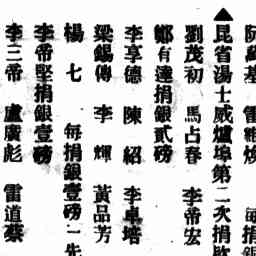 ▲昆省湯士威爐埠第二次捐欵
劉茂初 馬占春 李帝宏
鄭有達捐銀貳磅
李享德 陳紹 李卓培
梁錫傳 李輝 黃品芳
楊七 每捐銀壹磅一先
李帝堅捐銀壹磅
李三帝 盧廣彪 雷道蔡